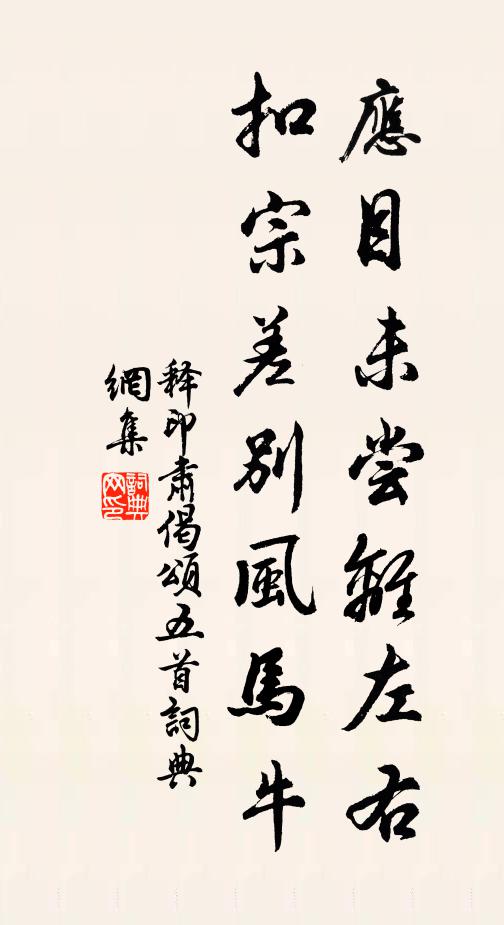 應目未嘗離左右
扣宗差別風馬牛
释印肃偈頌五首詞典
網集
詞典
网印